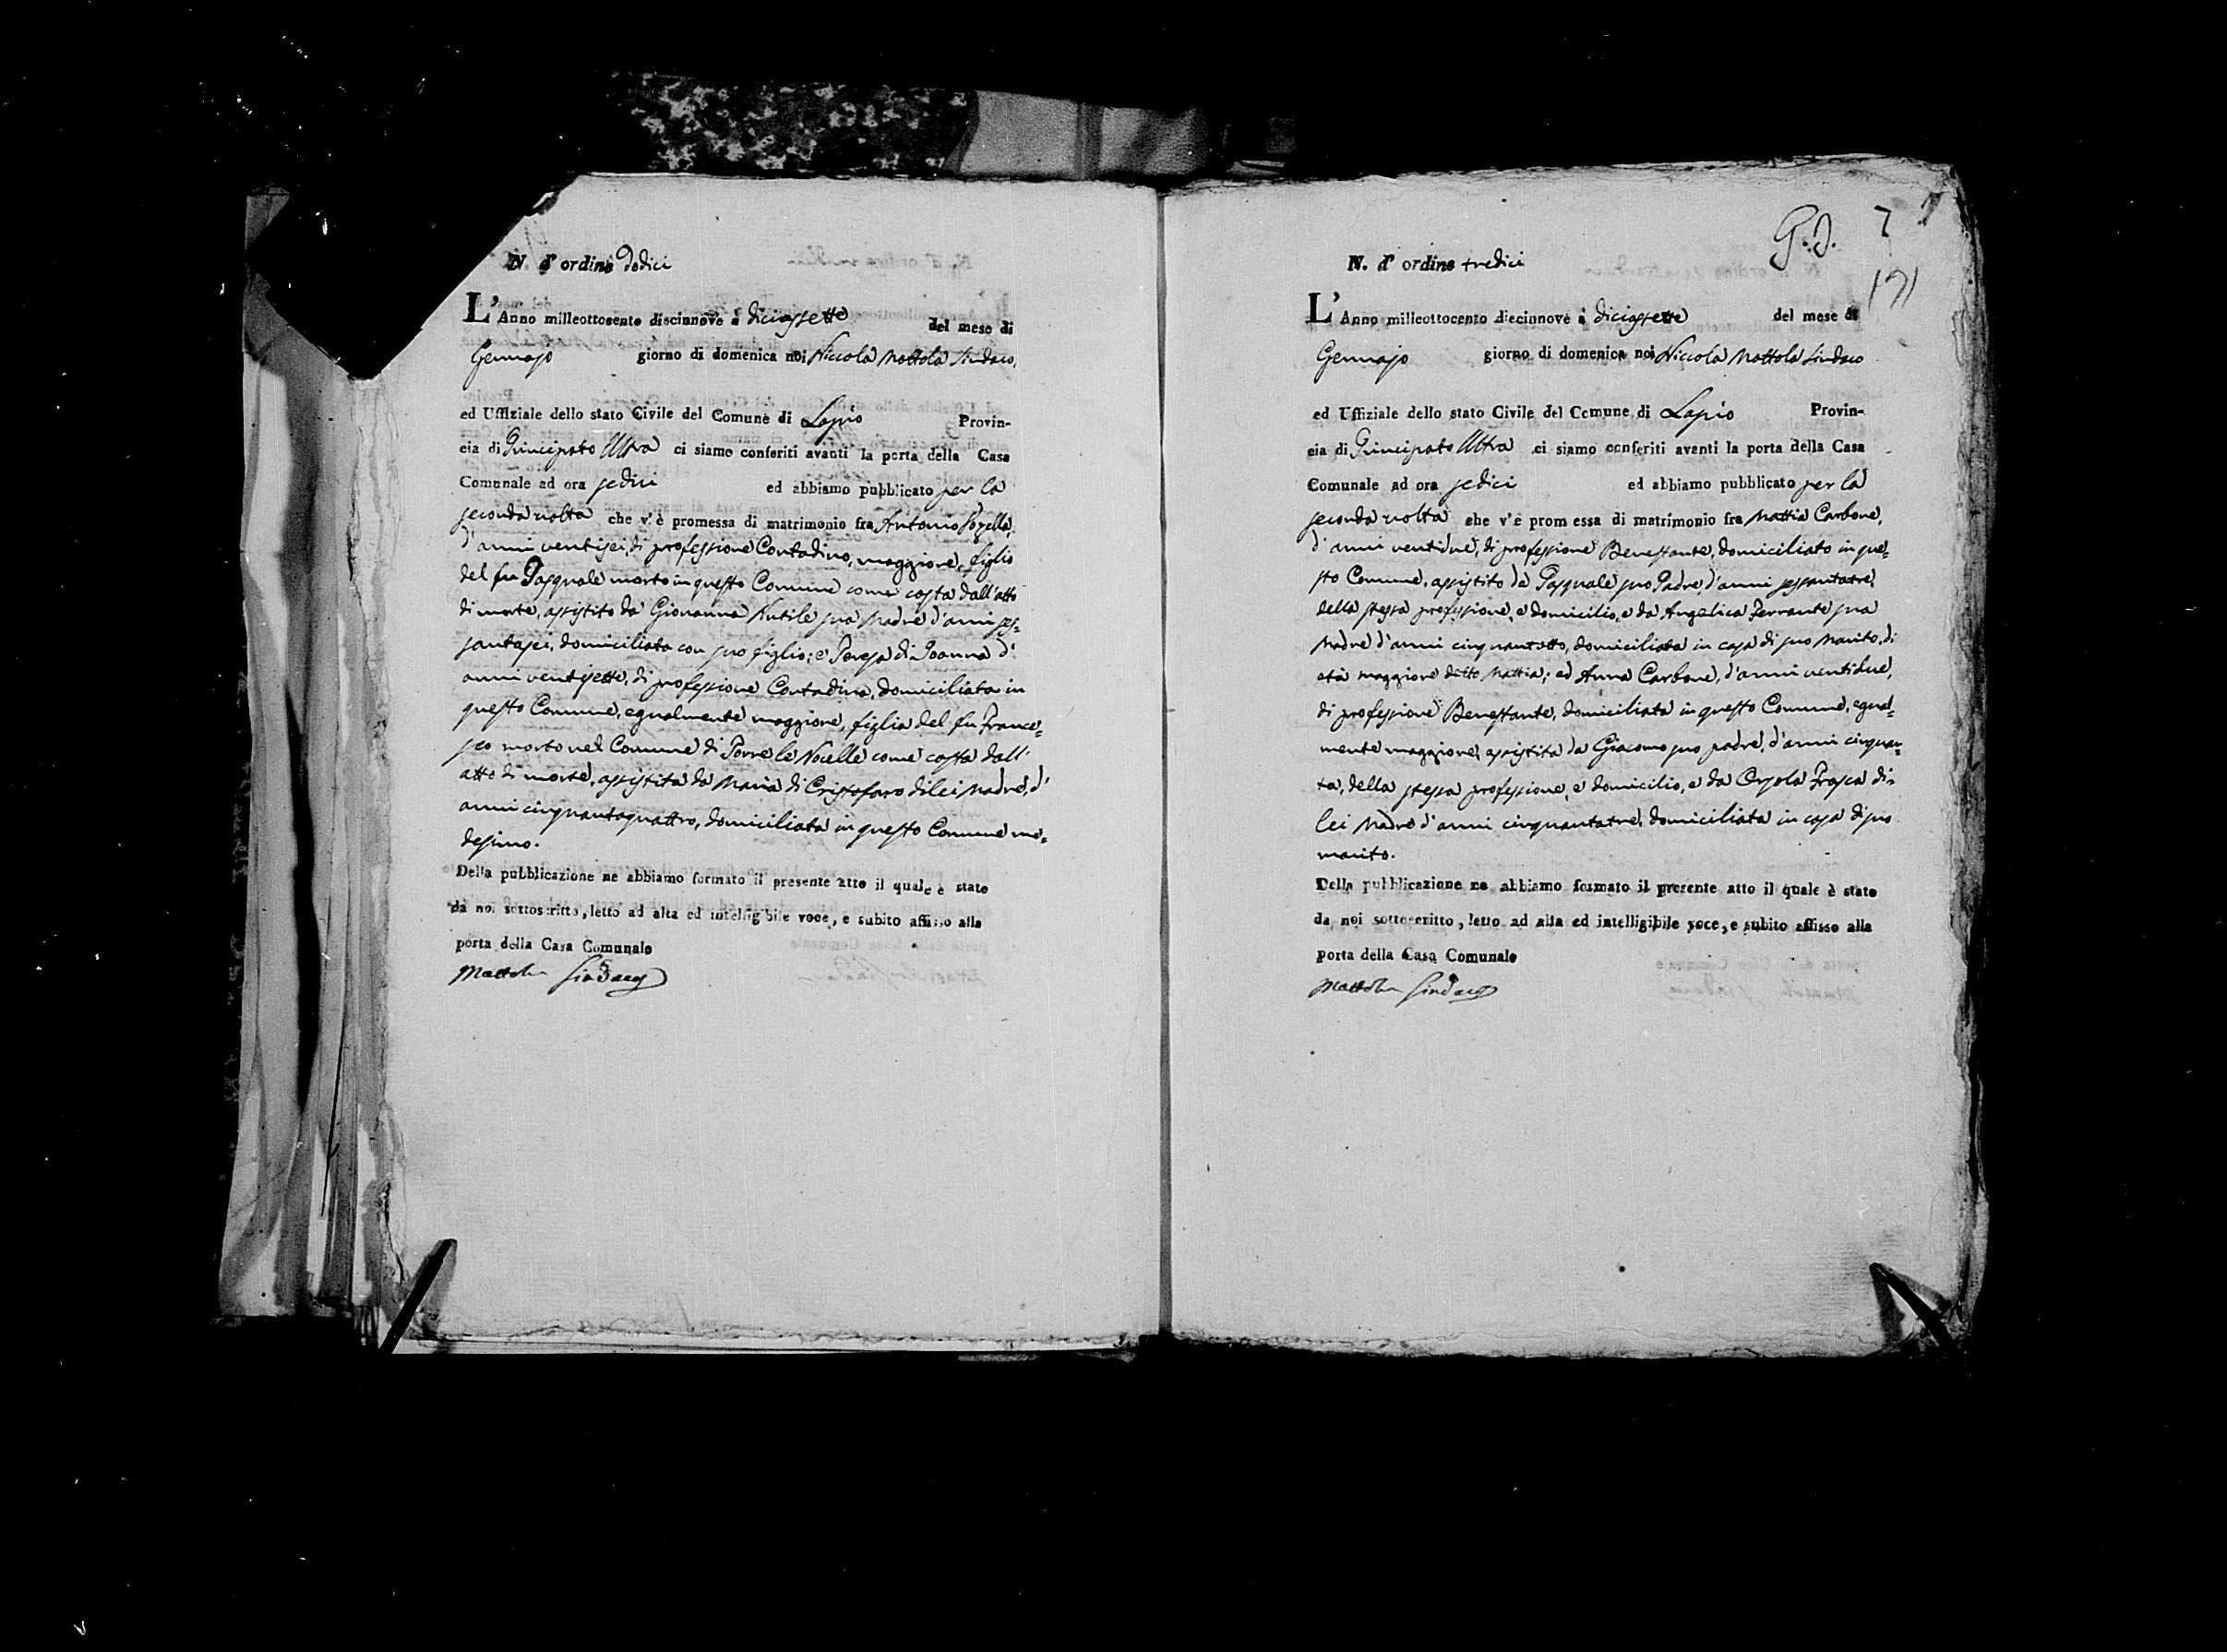 N. d'ordine dodici
L'Anno milleottocento diecinnove à diciassette del mese di
Gennajo giorno di domenica noi Niccola Mottola Sindaco,
ed Uffiziale dello stato Civile del Comune di Lapio Provin-
cia di Principato Ultra ci siamo conferiti avanti la porta della Casa
Comunale ad ora sedici ed abbiamo pubblicato per la
seconda volta che v'è promessa di matrimonio fra Antonio
d'anni ventisei, di professione Contadino, maggiore, figlio
del fu Pasquale morto in questo Comune come costa dall'atto
di morte, assistito da Giovanna Nutile sua Madre d'anni ses=
santasei, domiciliata con suo figlio; e Teresa di Joanna d'
anni ventisette, di professione Contadina, domiciliata in
questo Comune, egualmente maggiore, figlia del fu France=
sco morto nel Comune di Torre le Nocelle come costa dall'
atto di morte, assistita da Maria di Cristofaro di lei Madre, d'
anni cinquantaquattro, domiciliata in questo Comune me=
desimo.
Della pubblicazione ne abbiamo formato il presente atto il quale è stato
da noi sottoscritto, letto ad alta ed intelligibile voce, e subito affisso alla
porta della Casa Comunale
Mottola Sindaco
G.D. 7
171
N. d'ordine tredici
L'Anno milleottocento diecinnove à diciassette del mese di
Gennajo giorno di domenica noi Niccola Mottola Sindaco
ed Uffiziale dello stato Civile del Comune di Lapio Provin-
cia di Principato Ultra ci siamo conferiti avanti la porta della Casa
Comunale ad ora sedici ed abbiamo pubblicato per la
seconda volta che v'è promessa di matrimonio fra Mattia Carbone,
d'anni ventidue, di professione Benestante, domiciliato in que=
sto Comune, assistito da Pasquale suo Padre, d'anni sessantatre,
della stessa professione, e domicilio, e da Angelica Ferrante sua
Madre d'anni cinquantotto, domiciliata in casa di suo Marito, di
età maggiore detto Mattia; ed Anna Carbone, d'anni ventidue,
di professione Benestante, domiciliata in questo Comune, egual=
mente maggiore, assistita da Giacomo suo padre, d'anni cinquan=
ta, della stessa professione, e domicilio, e da Orsola Frasca di
lei Madre d'anni cinquantatre, domiciliata in casa di suo
marito.
Della pubblicazione ne abbiamo formato il presente atto il quale è stato
da noi sottoscritto, letto ad alta ed intelligibile voce, e subito affisso alla
porta della Casa Comunale
Mottola Sindaco